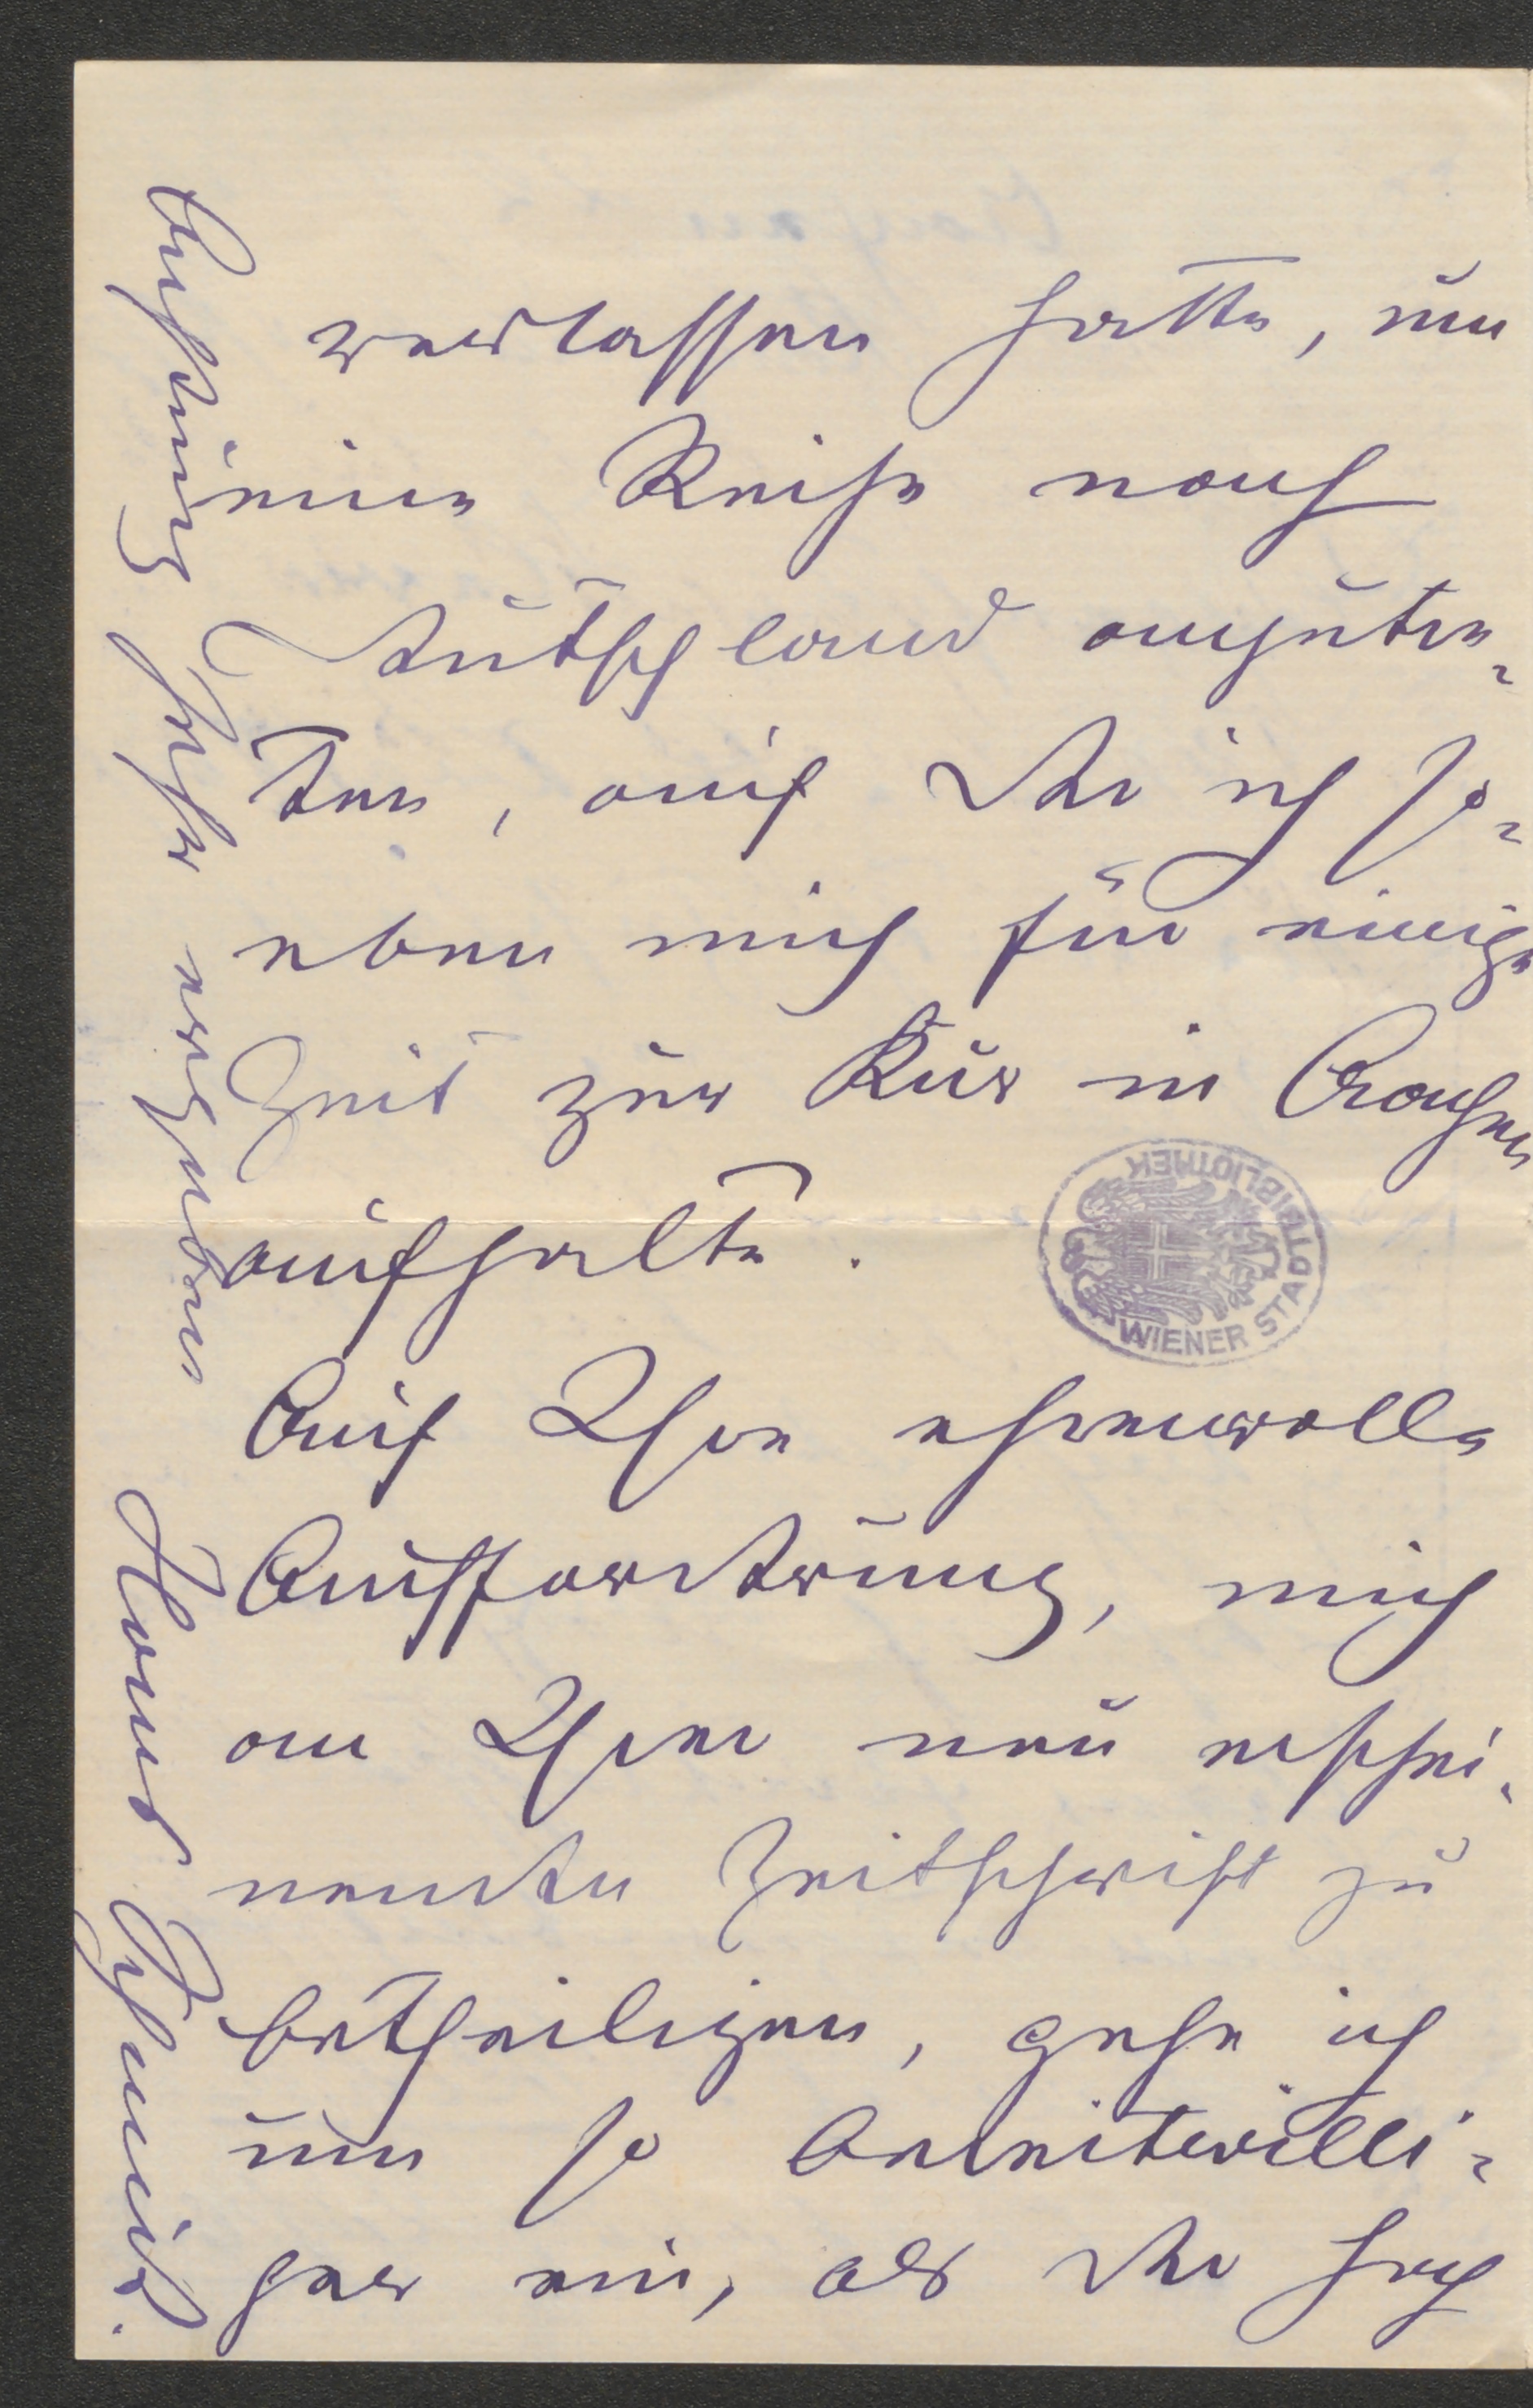 verlassen hatte, um
eine Reise nach
Deutschland anzutre-
ten, auf der ich so-
eben mich für einige
Zeit zur Kur in Aachen
aufhalte.
Auf Ihre ehrenvolle
Aufforderung, mich
an Ihrer neu erschei-
nenden Zeitschrift zu
betheiligen, gehe ich
um so bereitwilli-
ger ein, als der hoch
Achtung sehr ergebener
Hans Schmidt.
WIENER STADTBIBLIOTHEK